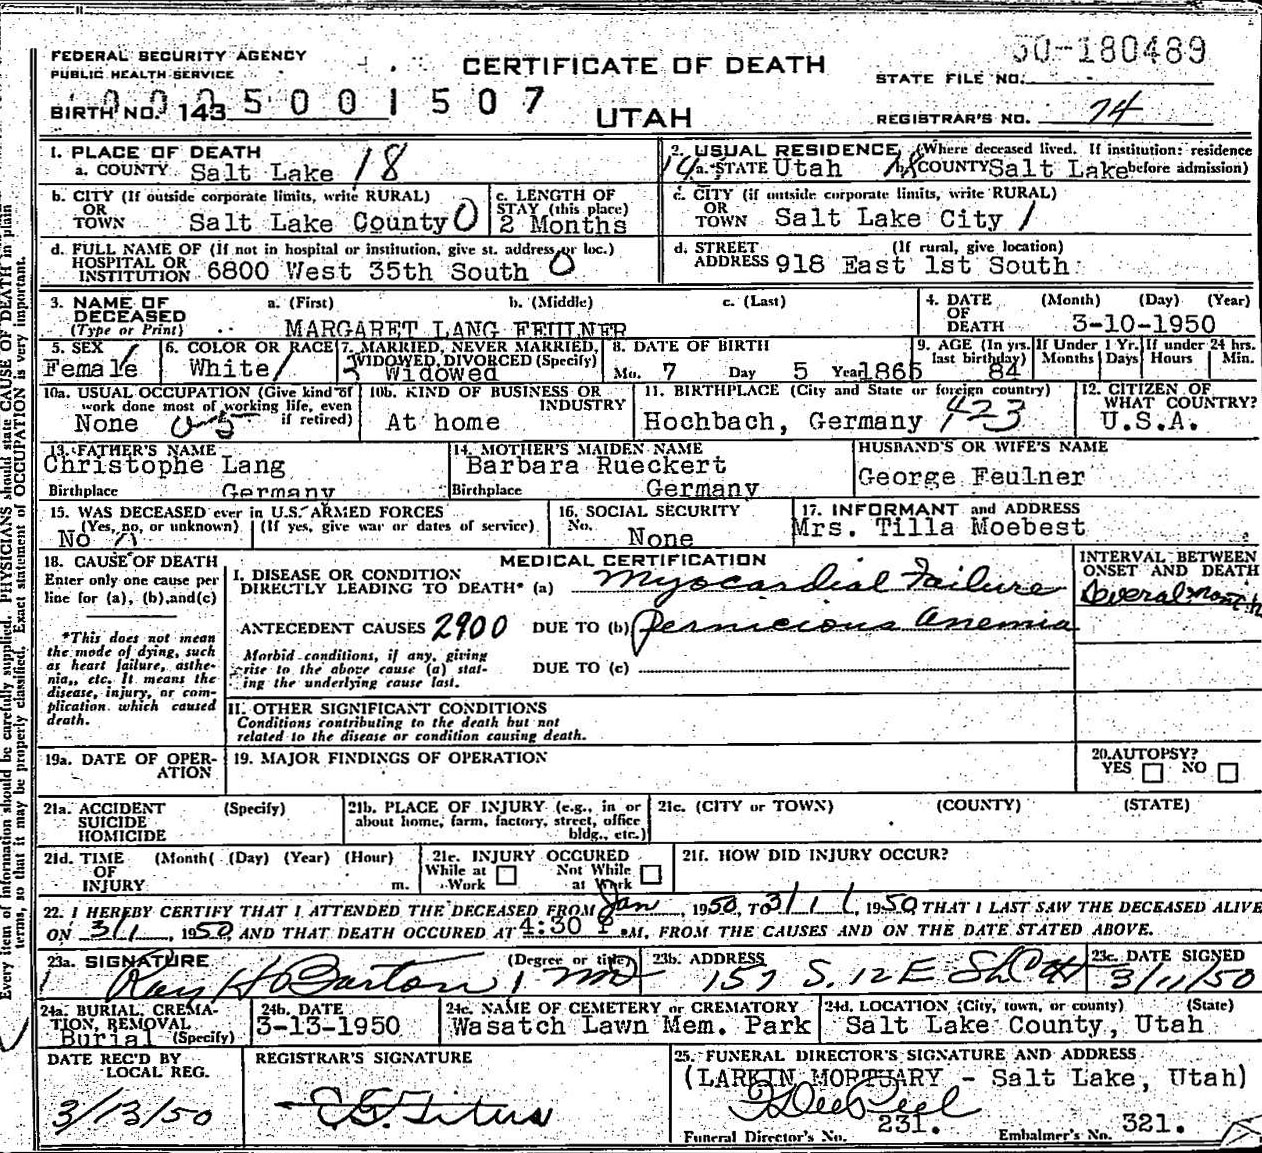 FEDERAL SECURITY AGENCY
PUBLIC HEALTH SERVICE
CERTIFICATE OF DEATH
UTAH
50-180489
STATE FILE NO.
0005001507
BIRTH NO. 143
REGISTRAR'S NO. 74
1. PLACE OF DEATH
a. COUNTY Salt Lake 18
2. USUAL RESIDENCE (Where deceased lived. If institution: residence before admission)
14 a. STATE Utah 18 b. COUNTY Salt Lake
b. CITY (If outside corporate limits, write RURAL)
OR
TOWN Salt Lake County 0
c. LENGTH OF
STAY (this place)
2 Months
c. CITY (if outside corporate limits, write RURAL)
OR
TOWN Salt Lake City 1
d. FULL NAME OF (If not in hospital or institution, give st. address or loc.)
HOSPITAL OR
INSTITUTION 6800 West 35th South 0
d. STREET (If rural, give location)
ADDRESS 918 East 1st South
3. NAME OF
DECEASED
(Type or Print)
a. (First) b. (Middle) c. (Last)
MARGARET LANG FEULNER
4. DATE (Month) (Day) (Year)
OF
DEATH 3-10-1950
5. SEX
Female
6. COLOR OR RACE
White
7. MARRIED, NEVER MARRIED,
WIDOWED, DIVORCED (Specify)
3 Widowed
8. DATE OF BIRTH
Mo. 7 Day 5 Year 1865
9. AGE (In yrs.
last birthday)
84
If Under 1 Yr.
Months Days
If under 24 hrs.
Hours Min.
10a. USUAL OCCUPATION (Give kind of
work done most of working life, even
if retired)
None
10b. KIND OF BUSINESS OR
INDUSTRY
At home
11. BIRTHPLACE (City and State or foreign country)
Hochbach, Germany 423
12. CITIZEN OF
WHAT COUNTRY?
U.S.A.
13. FATHER'S NAME
Christophe Lang
Birthplace Germany
14. MOTHER'S MAIDEN NAME
Barbara Rueckert
Birthplace Germany
HUSBAND'S OR WIFE'S NAME
George Feulner
15. WAS DECEASED ever in U.S. ARMED FORCES
(Yes, no, or unknown) (If yes, give war or dates of service)
No
16. SOCIAL SECURITY
No. None
17. INFORMANT and ADDRESS
Mrs. Tilla Moebest
18. CAUSE OF DEATH
Enter only one cause per
line for (a), (b), and (c)
*This does not mean
the mode of dying, such
as heart failure, asthe-
nia,, etc. It means the
disease, injury, or com-
plication which caused
death.
MEDICAL CERTIFICATION
I. DISEASE OR CONDITION
DIRECTLY LEADING TO DEATH* (a) Myocardial Failure
ANTECEDENT CAUSES 2900 DUE TO (b) Pernicious anemia
Morbid conditions, if any, giving
rise to the above cause (a) stat-
ing the underlying cause last.
DUE TO (c)
INTERVAL BETWEEN
ONSET AND DEATH
Several months
II. OTHER SIGNIFICANT CONDITIONS
Conditions contributing to the death but not
related to the disease or condition causing death.
19a. DATE OF OPER-
ATION
19. MAJOR FINDINGS OF OPERATION
20. AUTOPSY?
YES NO
21a. ACCIDENT (Specify)
SUICIDE
HOMICIDE
21b. PLACE OF INJURY (e.g., in or
about home, farm, factory, street, office
bldg., etc.)
21c. (CITY or TOWN) (COUNTY) (STATE)
21d. TIME (Month( (Day) (Year) (Hour)
OF
INJURY m.
21e. INJURY OCCURED
While at Work
Not While at Work
21f. HOW DID INJURY OCCUR?
22. I HEREBY CERTIFY THAT I ATTENDED THE DECEASED FROM Jan, 1950, TO 3/11, 1950, THAT I LAST SAW THE DECEASED ALIVE
ON 3/1, 1950, AND THAT DEATH OCCURED AT 4:30 P.M., FROM THE CAUSES AND ON THE DATE STATED ABOVE.
23a. SIGNATURE (Degree or title)
Ray H Barton, MD
23b. ADDRESS
157 S. 12 E
23c. DATE SIGNED
3/11/50
24a. BURIAL, CREMA-
TION, REMOVAL
Burial (Specify)
24b. DATE
3-13-1950
24c. NAME OF CEMETERY or CREMATORY
Wasatch Lawn Mem. Park
24d. LOCATION (City, town, or county) (State)
Salt Lake County, Utah
DATE REC'D BY
LOCAL REG.
3/13/50
REGISTRAR'S SIGNATURE
25. FUNERAL DIRECTOR'S SIGNATURE AND ADDRESS
(LARKIN MORTUARY - Salt Lake, Utah)
Funeral Director's No. 231. Embalmer's No. 321.
Every item of information should be carefully supplied. PHYSICIANS should state CAUSE OF DEATH in plain
terms, so that it may be properly classified. Exact statement of OCCUPATION is very important.